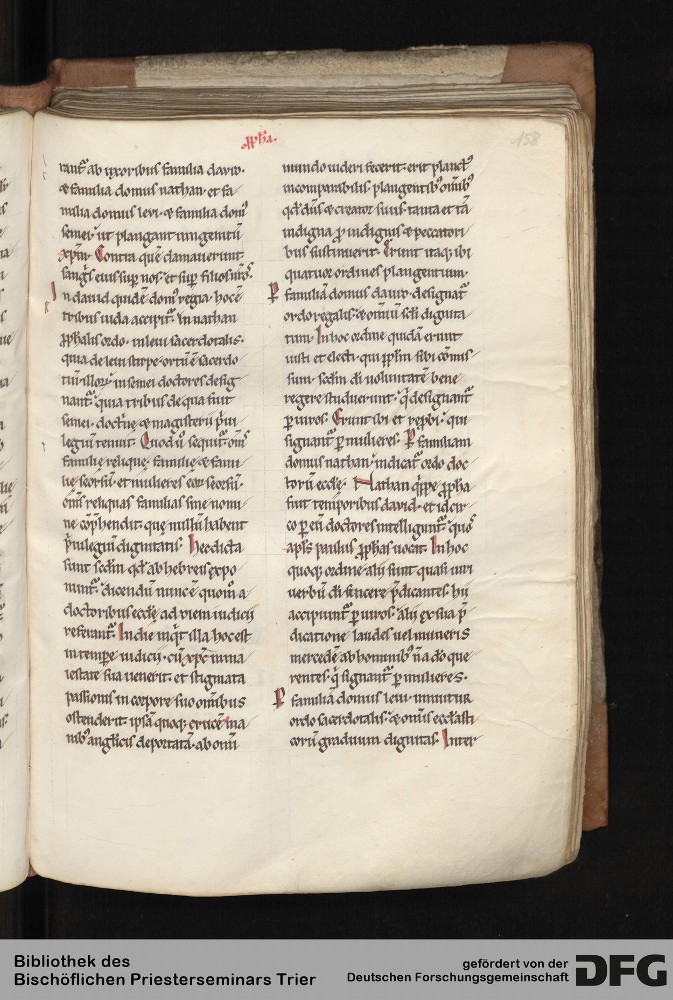 ꝓph̄a.
158
rant᷑ ab uxoribus familia dauid.
& familia domus nathan. et fa
milia domus leui. & familia dom᷒
semei. ut plangant unigenitū
xp̄m. Contra quē clamauerunt
sang᷒s eius suꝑ nos. et suꝑ filios nr̄os.
In dauid quidē dom᷒ regia. hoc ē
tribus iuda accipit᷑. In nathan
ꝓphalis ordo. in leui sacerdotalis.
quia de leui stirpe ortū ē sacerdo
tiū. In semei doctores desig
nant᷑. quia tribus de qua fuit
semei. doctrinę & magisterii p̄ui
legiū tenuit. Quod u᷒ sequit᷑. om̄s
familię relique. familię & fami
lię seorsū. et mulieres eoꝝ seorsū.
om̄s reliquas familias sine nomi
ne cōp̄hendit. quę nullū habent
p̄uilegiū dignitatis. Hec dicta
sunt scd̄m qd̄ ab hebreis expo
nunt᷑. dicendū nunc ē quom̄ a
doctoribus eccłę ad diem iudicii
referant᷑. In die inq̇t illa hoc est
in tempe iudicij. cū xp̄c in ma
iestate sua uenerit. et stigmata
passionis in corpore suo omībus
ostenderit. ipsā quoq; crucē ma
nib᷒ angłicis deportatā. ab omī
mundo uideri fecerit. erit planct᷒
incomparabilis plangentib᷒ omīb᷒
qd̄ dn̄s & creator suus. tanta et tā
indigna ꝓ indignis & peccatori
bus sustinuerit. Erunt itaq; ibi
quatuor ordines plangentium.
P familiā domus dauid. designat᷑
ordo regalis. & omīū scłi dignita
tum. In hoc ordine quidā erunt
iusti et electi. qui ꝓpłm sibi cōmis
sum. scd̄m dī uoluntatē bene
regere studuerunt. q̇ designant᷑
ꝑ uiros. Erunt ibi et repbi. qui
signant᷑ ꝑ mulieres. P familiam
domus nathan. indicat᷑ ordo doc
torū eccłę. Nathan q̇ppe ꝓpha
fuit temporibus dauid. et idcir
co ꝑ eū doctores intelligunt᷑. quos
apłs paulus ꝓphas uocat. In hoc
quoq; ordine alii sunt quasi uiri
uerbū dī sincere p̄dicantes. hii
accipiunt᷑ ꝑ uiros. alii ex sua p̄
dicatione laudes uel muneris
mercedē ab hominib᷒ n̄ a dō que
rentes. q̇ signant᷑ ꝑ mulieres.
P familiā domus leui. innuitur
ordo sacerdotalis. & omīs eccłasti
corū graduum dignitas. Inter
Bibliothek des
Bischöflichen Priesterseminars Trier
gefördert von der
Deutschen Forschungsgemeinschaft
DFG